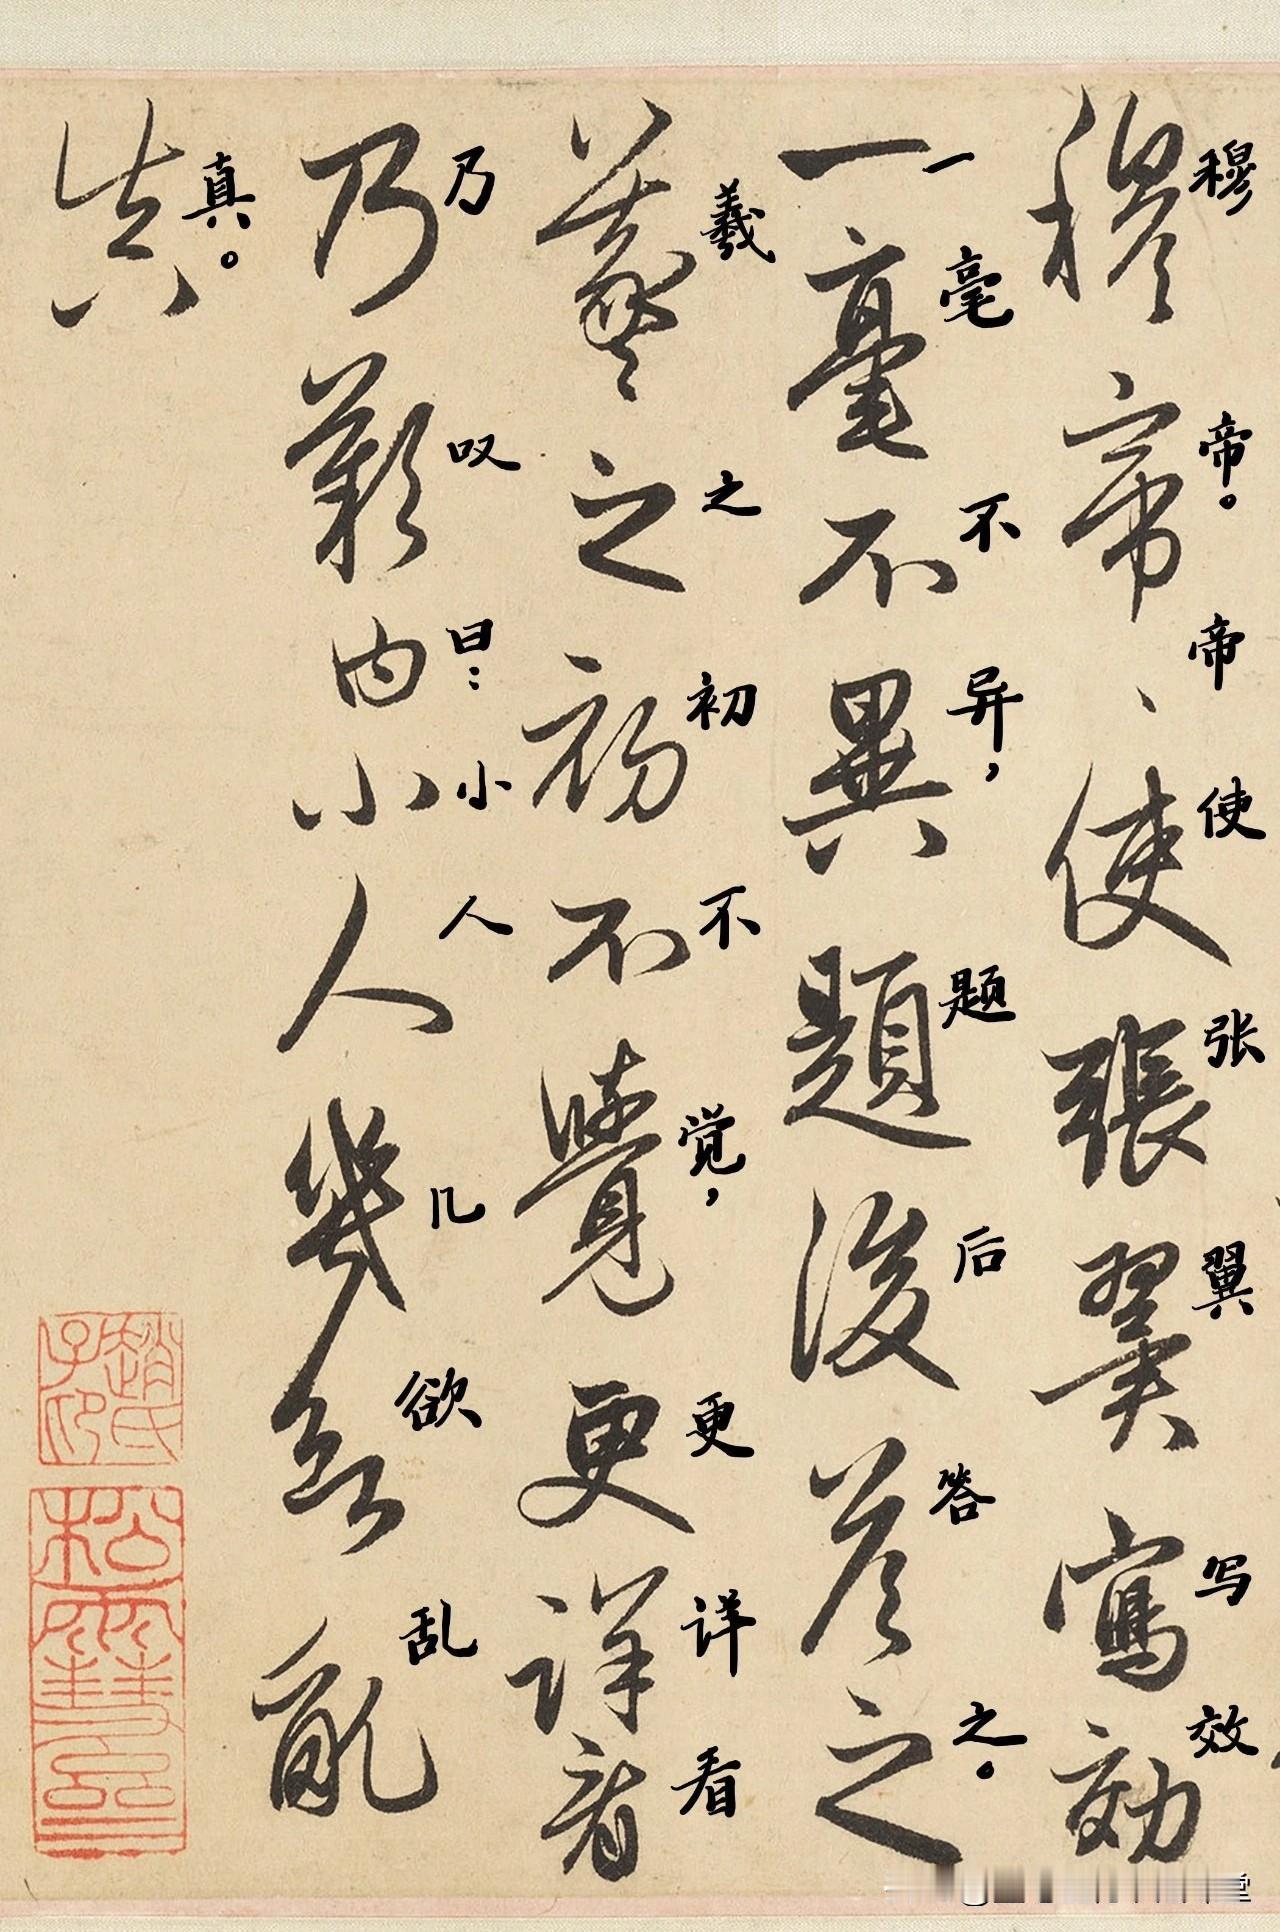 穆帝。帝使张翼写效
穆帝、使張翼寫効
一毫不异，题后答之。
一毫不異題後答之
羲之初不觉，更详看
羲之初不覺更詳看
乃叹曰：小人几欲乱
乃歎曰小人幾欲亂
真。
真
趙氏子印
松雪齋